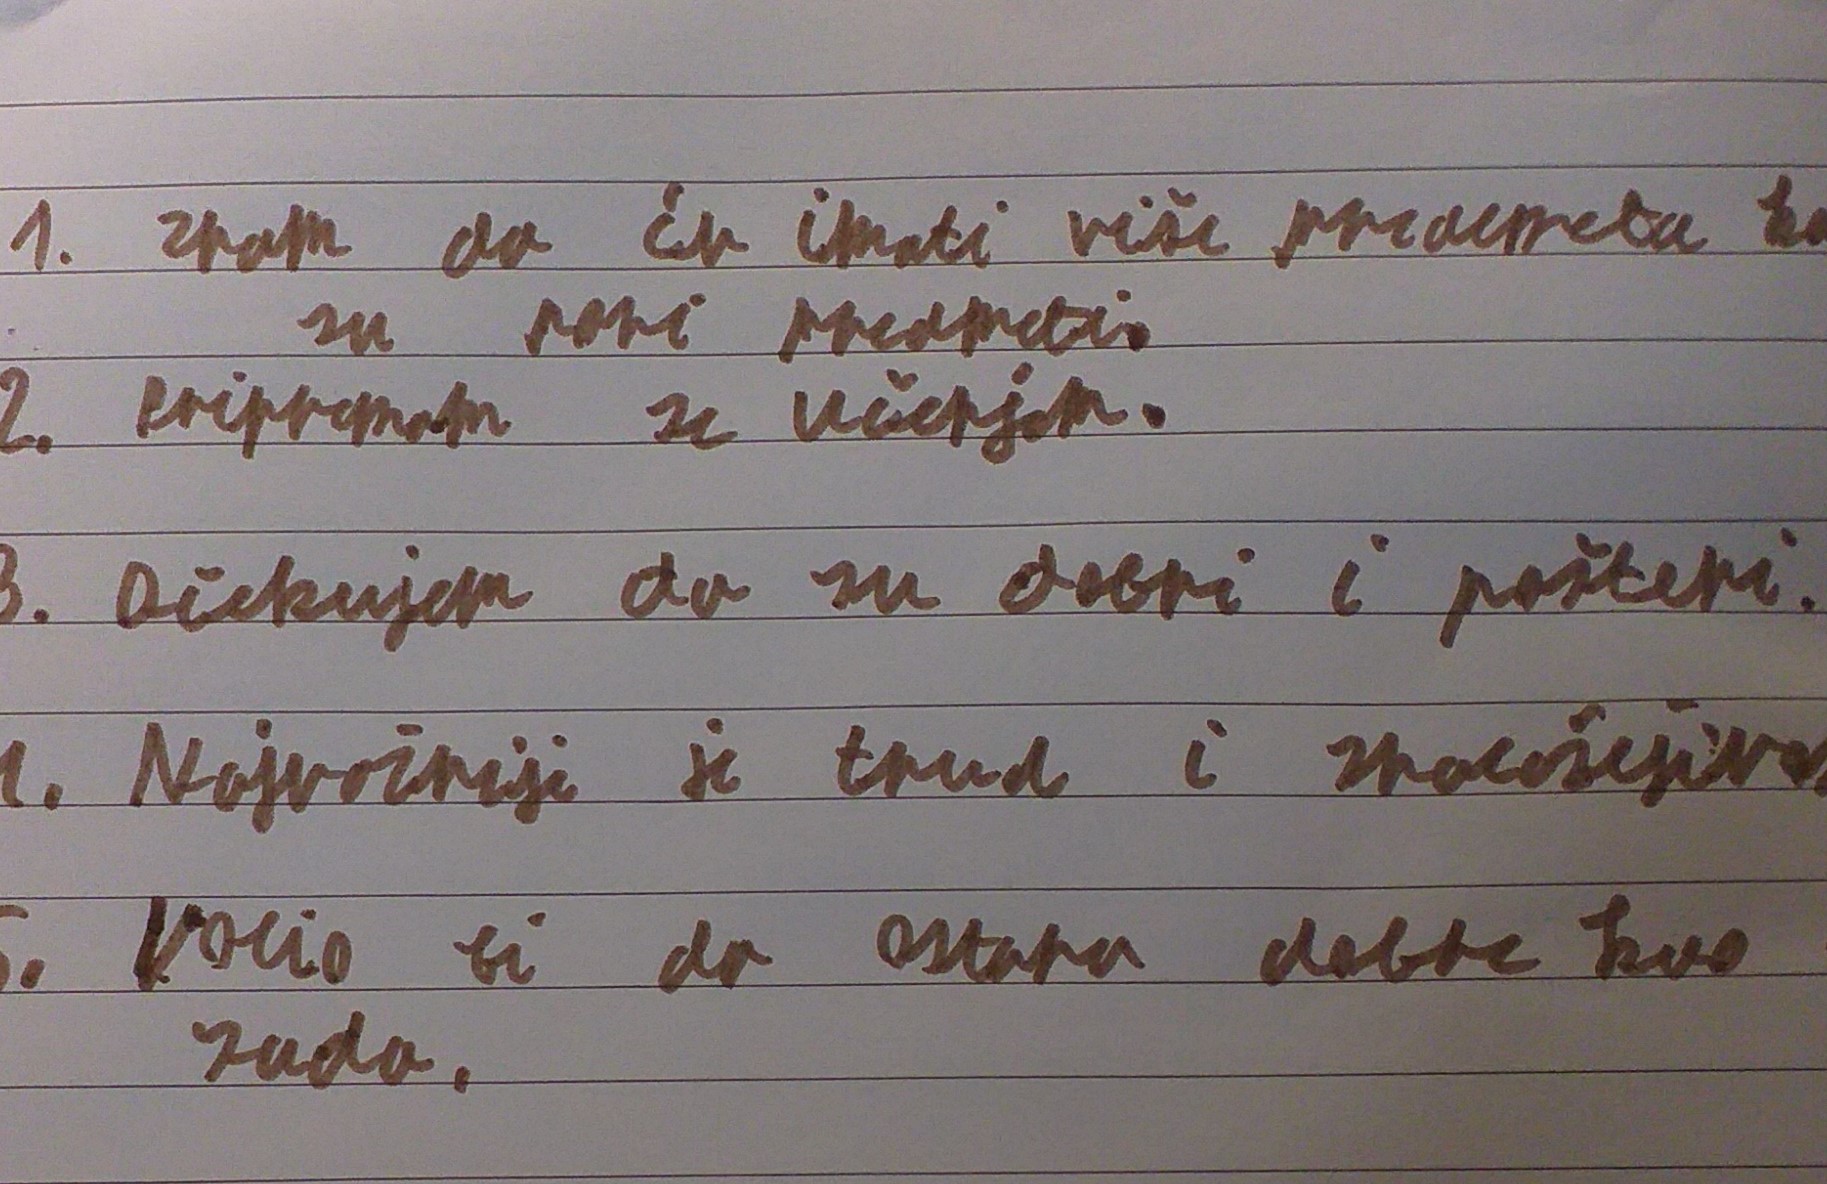 1. znam da ću imati više predemeta ko
su novi predmeti.
2. Pripremam se učenjem.
3. Očekujem da su dobri i pošteni.
4. Najvažniji je trud i
5. Volio bi da ostanu dobre kao
sada.